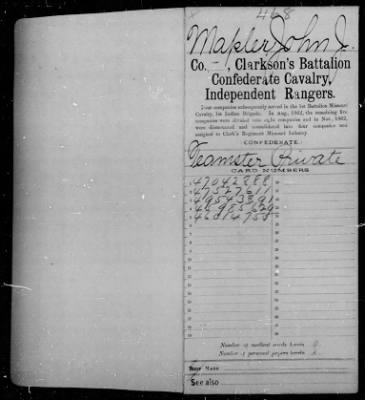 468
Mapler, John J.
Co. –, Clarkson's Battalion
Confederate Cavalry,
Independent Rangers.
Four companies subsequently served in the 1st Battalion Missouri
Cavalry, 1st Indian Brigade. In Aug., 1862, the remaining five
companies were divided into eight companies and in Nov., 1862,
were dismounted and consolidated into four companies and
assigned to Clark's Regiment Missouri Infantry.
CONFEDERATE.
Teamster Private
CARD NUMBERS
1 47042888
2 47527611
3
4
5
Number of medical cards herein 0
Number of personal papers herein
Book Mark:
See also